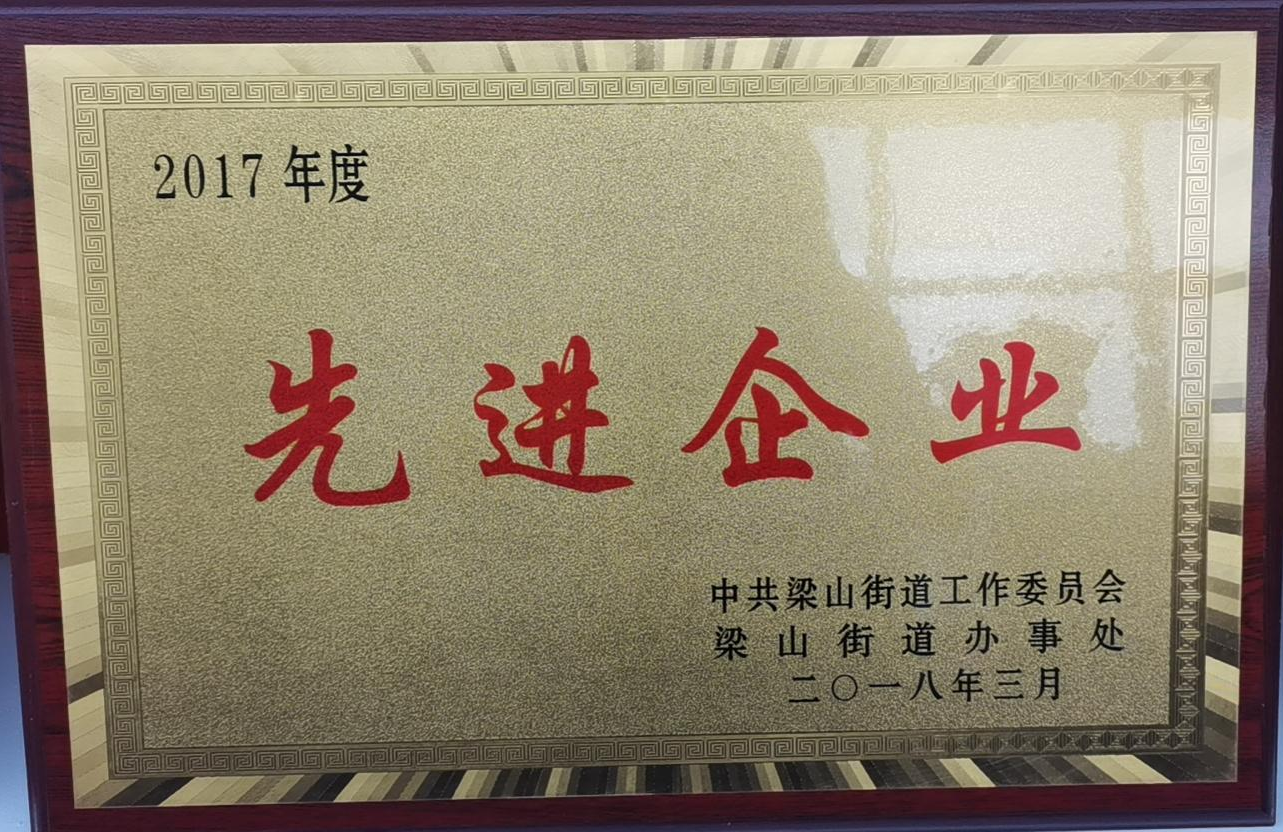 2017 年度
先进企业
中共梁山街道工作委员会
梁山街道办事处
二〇一八年三月